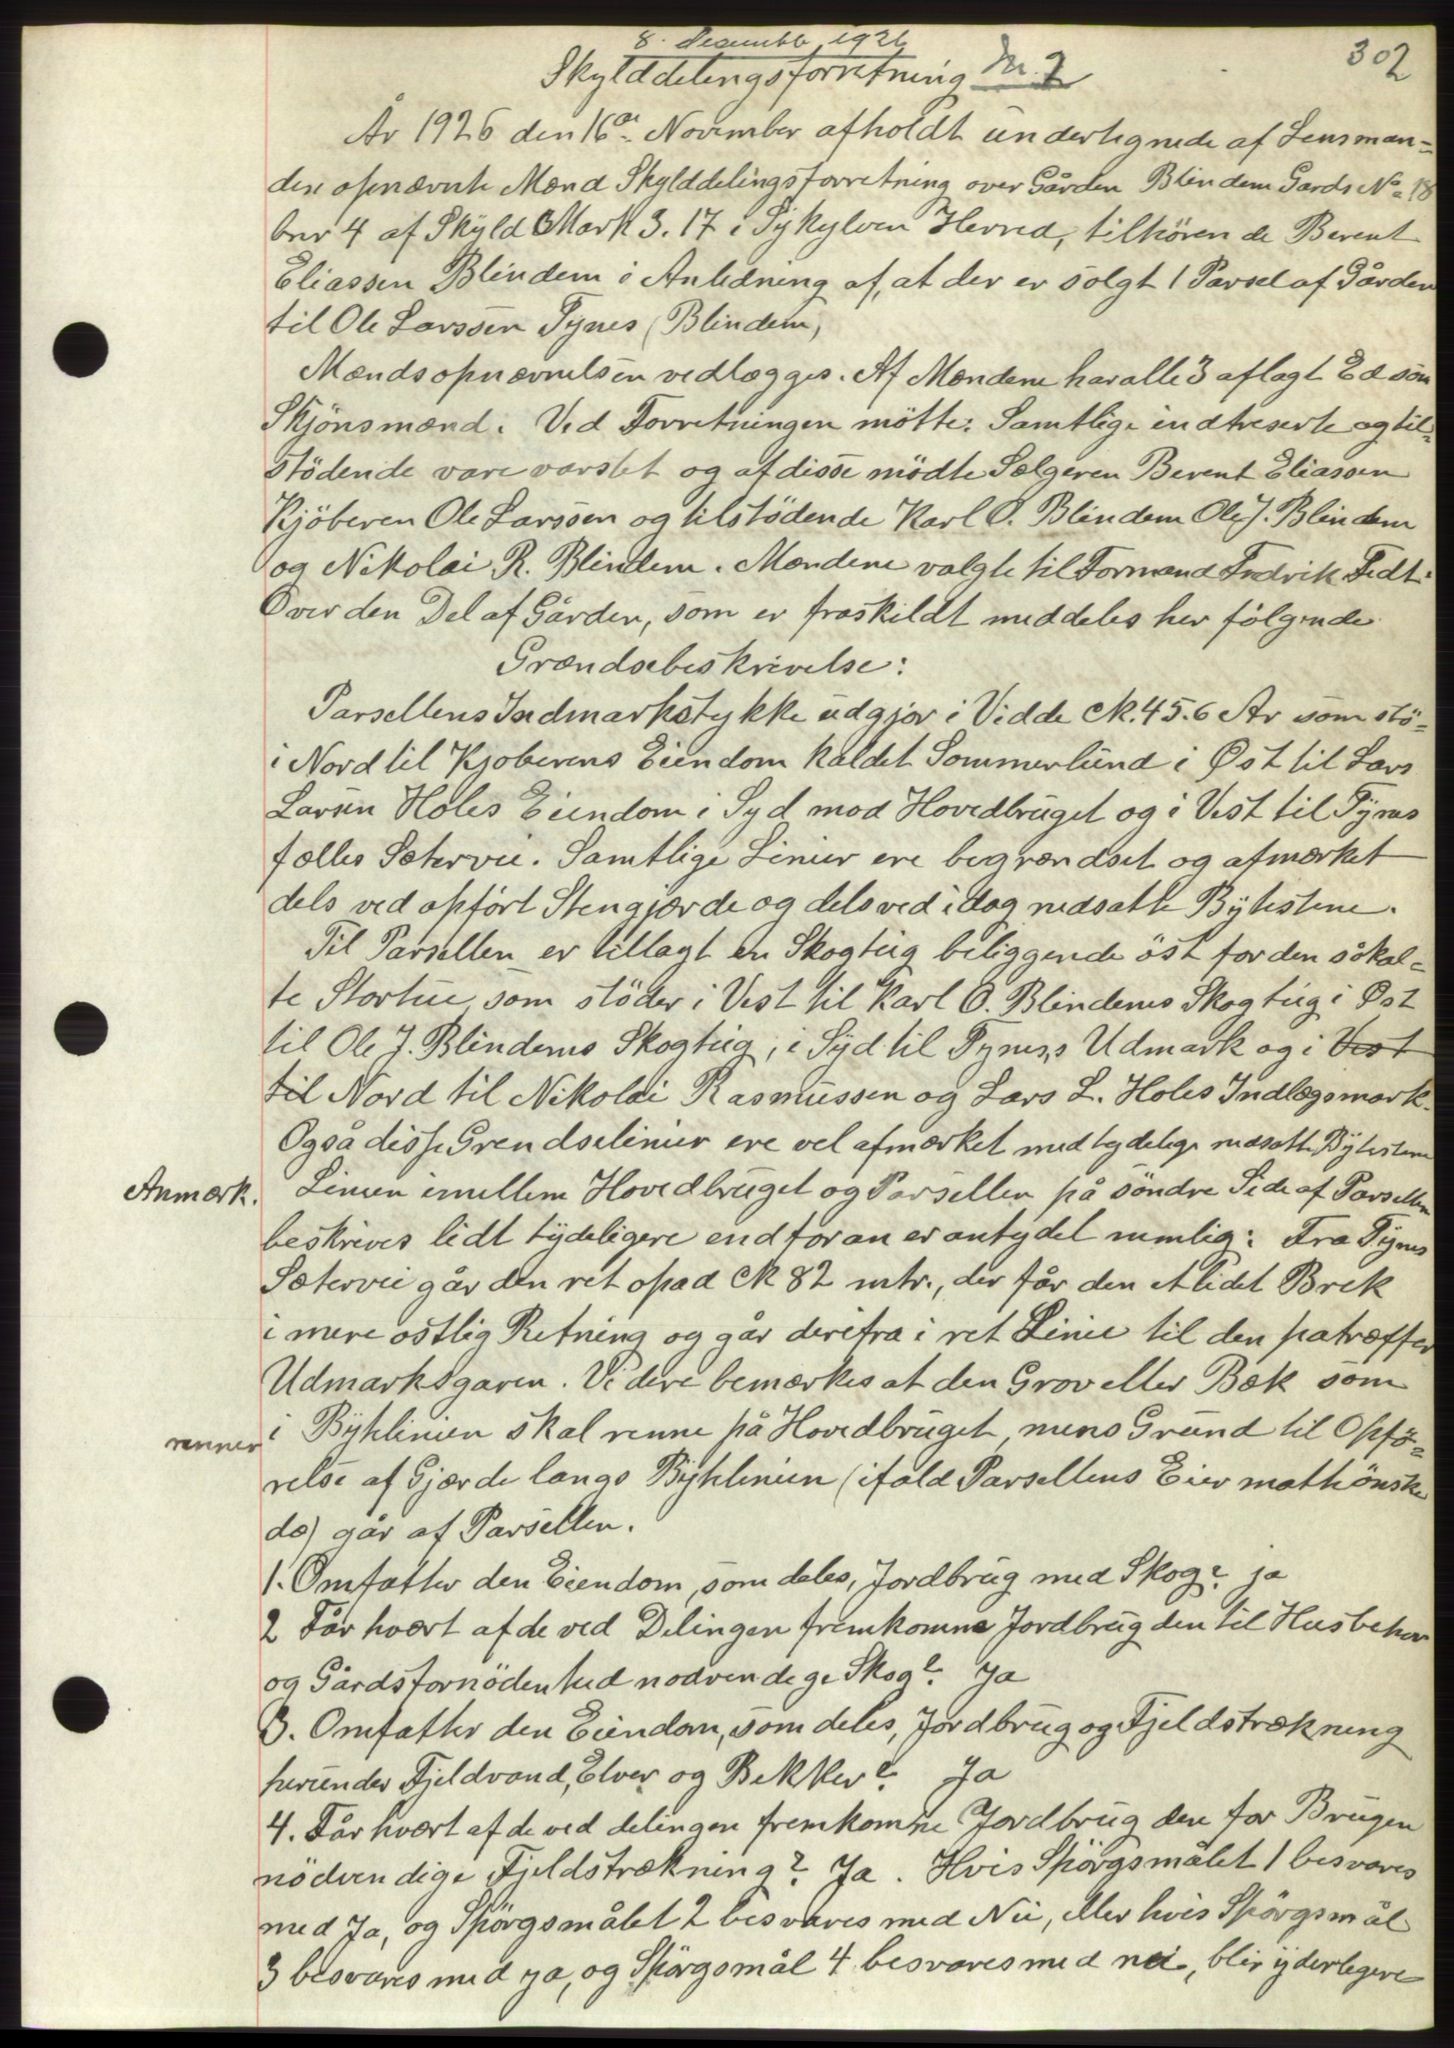 8. Desember 1926
302
Skylddelingsforretning Nr. 2
År 1926 den 16de November afholdt undertegnede af Lensman-
den opnævnte Mænd Skylddelingsforretning over Gården Blindem Gards No 18
bnr 4 af Skyld Mark 3.17 i Sykylven Herred, tilhörende Berent
Eliassen Blindem i Anledning af, at der er solgt 1 Parsel af Gården
til Ole Larssen Tynes (Blindem,
Mændsopnævnelsen vedlægges. Af Mændene har alle 3 aflagt Ed som
Skjönsmænd. Ved Forretningen mötte: Samtlige indtreserte og til-
stödende vare varslet og af disse mödte Sælgeren Berent Eliassen
Kjöberen Ole Larssen og tilstödende Karl O. Blindem Ole J. Blindem
og Nikolai R. Blindem. Mændene valgte til Formand Fredrik Fedt.
Over den Del af Gården, som er fraskildt meddeles her fölgende
Grændsebeskrivelse:
Parsellens Indmarkstykke udgjör i Vidde ck. 45.6 Ar som stö-
i Nord til Kjoberens Eiendom kaldet Sommerlund i Øst til Lars
Larsen Holes Eiendom i Syd mod Hovedbruget og i Vest til Tynes
fælles Sætervei. Samtlige Linier ere begrændset og afmærket
dels ved opfört Stengjærde og dels ved idag nedsatte Bytestene.
Til Parsellen er tillagt en Skogteig beliggende öst for den såkal-
te Stortue som stöder i Vest til Karl O. Blindems Skogteig i Øst
til Ole J. Blindems Skogteig, i Syd til Tynes,s Udmark og i Vest
til Nord til Nikolai Rasmussen og Lars L. Holes Indlægsmark.
Også disse Grendselinier ere vel afmærket med tydelige nedsatte Bytestene
Anmærk. Linien imellem Hovedbruget og Parsellen på söndre Side af Parsellen
beskrives lidt tydeligere end foran er antydet nemlig: Fra Tynes
Sætervei går den ret opad ck 82 mtr., der får den et lidet Brek
i mere ostlig Retning og går derifra i ret Linie til den patræffer
Udmarksgaren. Videre bemærkes at den Grov eller Bæk som
renner i Bytelinien skal renne på Hovedbruget, mens Grund til Opfö-
relse af Gjærde langs Bytelinien (ifald Parsellens Eier måtte önske
de) går af Parsellen.
1. Omfatter den Eiendom, som deles, Jordbrug med Skog? ja
2 Får hvært af de ved Delingen fremkomne Jordbrug den til Husbehov
og Gårdsfornödenhed nodvendige Skog? Ja
3. Omfatter den Eiendom, som deles, Jordbrug og Fjeldstrækning
herunder Fjeldvand, Elver og Bekker? Ja
4. Får hvært af de ved delingen fremkomne Jordbrug den for Brugen
nödvendige Fjeldstrækning? Ja. Hvis Spörgsmålet 1 besvares
med Ja, og Spörgsmålet 2 besvares med Nei, eller hvis Spörgsmål
3 besvares med ja, og Spörgsmål 4 besvares med nei, blir yderlegere